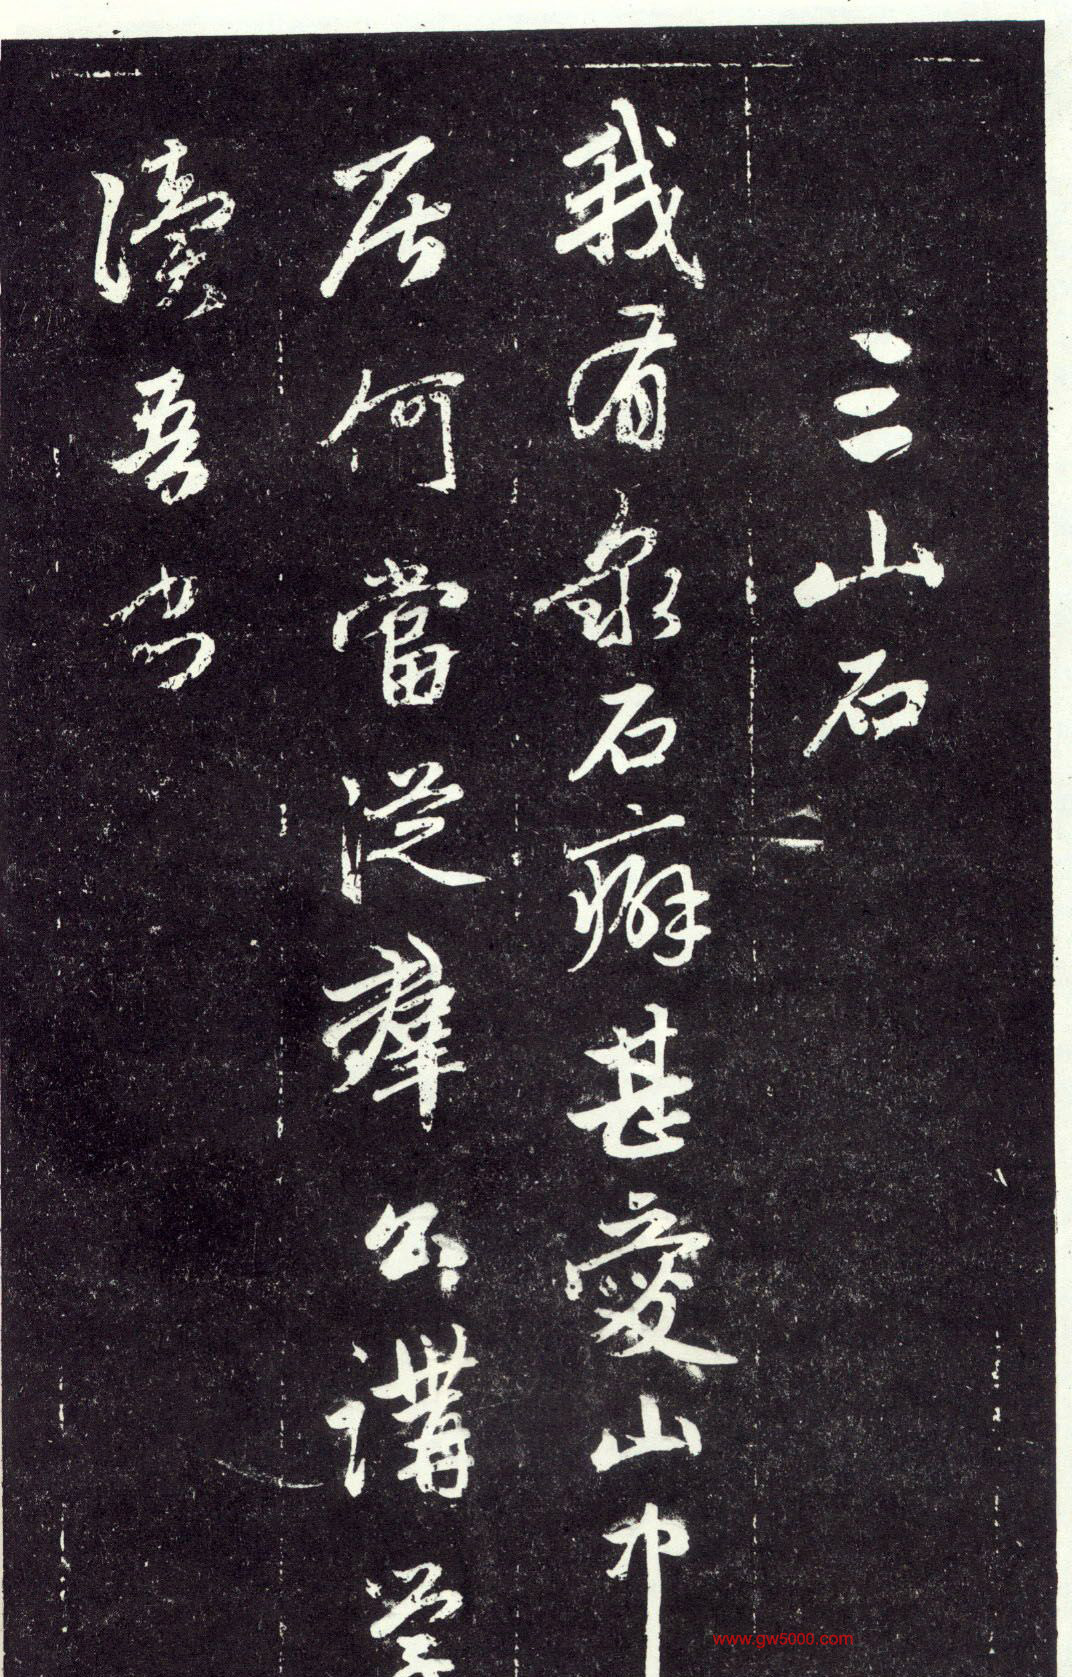 三山石
我有泉石癖甚愛山中
居何當從群公講學
讀吾書
www.gw5000.com